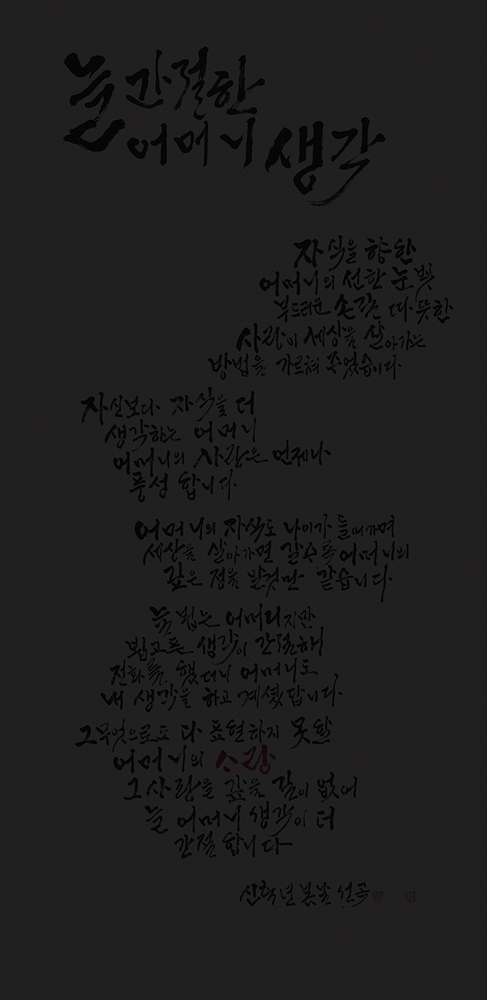 늘 간절한
어머니 생각
자식을 향한
어머니의 선한 눈빛
부드러운 손길은 따뜻한
사랑이 세상을 살아가는
방법을 가르쳐 주었습니다
자신보다 자식을 더
생각하는 어머니
어머니의 사랑은 언제나
풍성 합니다
어머니의 자식도 나이가 들어가며
세상을 살아가면 갈수록 어머니의
깊은 정을 알것만 같습니다
늘 뵙는 어머니지만
뵙고픈 생각이 간절해
전화를 했더니 어머니도
내 생각을 하고 계셨답니다
그무엇으로도 다 표현하지 못할
어머니의 사랑
그사랑을 갚을 길이 없어
늘 어머니 생각이 더
간절 합니다